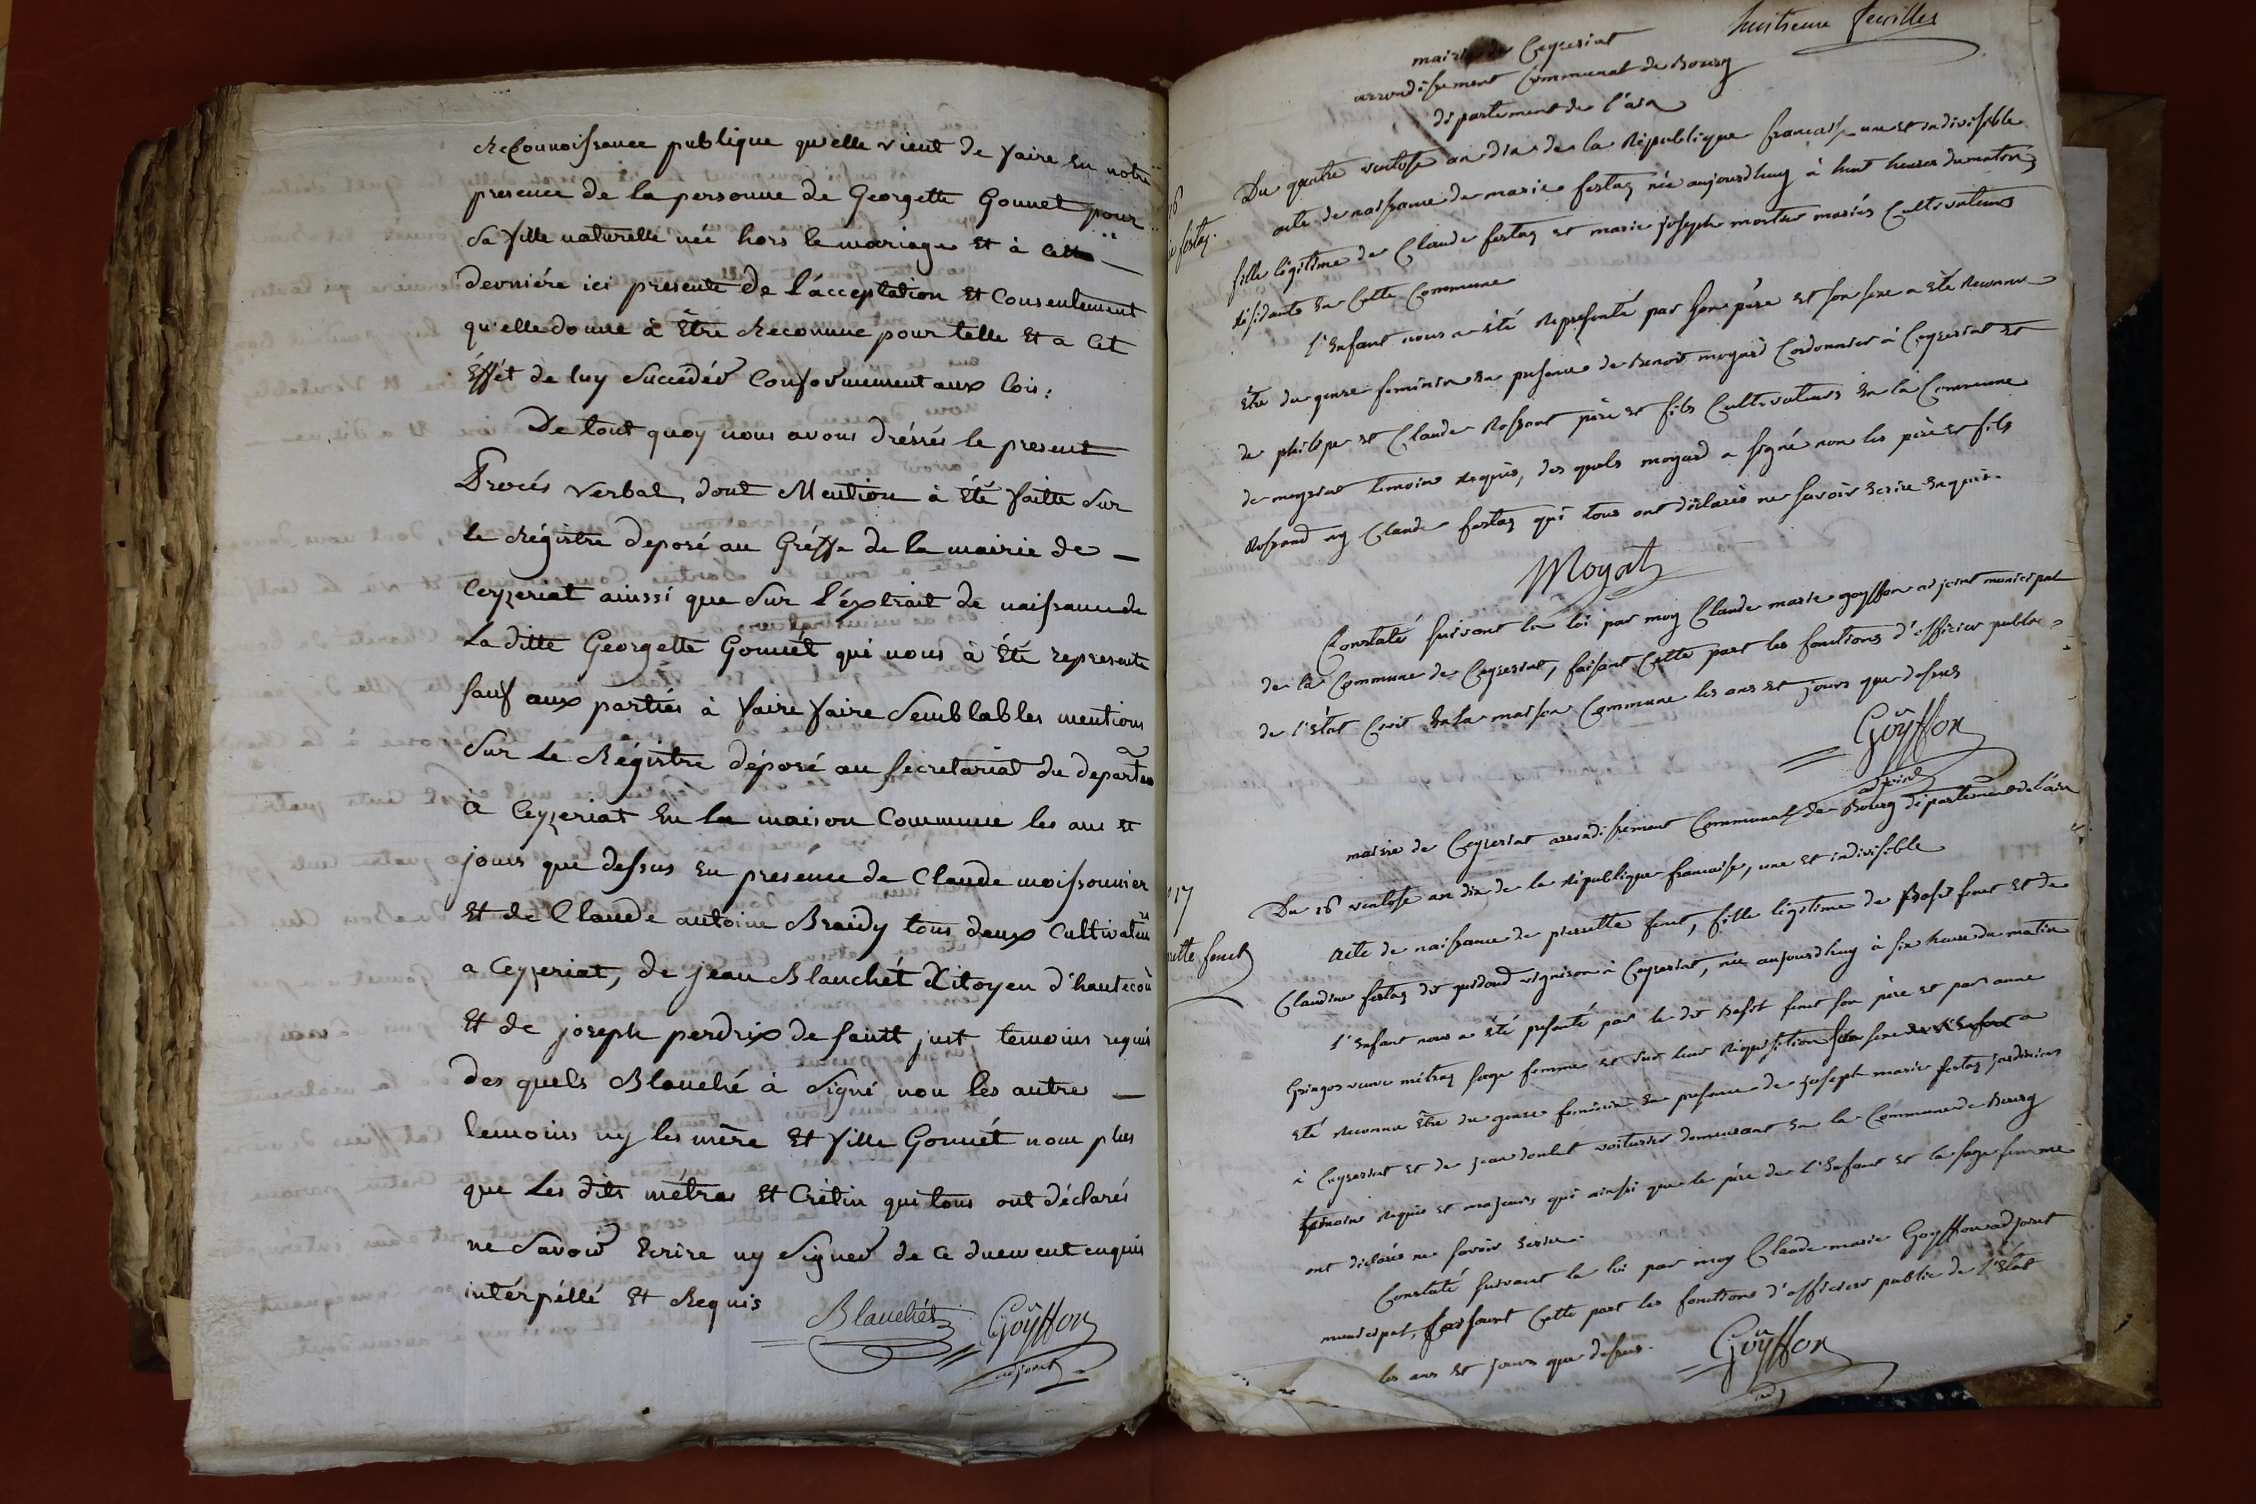 Reconnoissance publique qu'elle vient de faire En notre
presence de la personne de Georgette Gonnet pour
Sa fille naturelle née hors le mariage Et à cette
derniére ici presente de l'acceptation Et Consentement
qu'elle donne à Être Reconnue pour telle Et a Cet
Effét de luy Succéder Conformement aux lois;
De tout quoy nous avons dréssés le present
Procés verbal, dont Mention à Eté faitte Sur
le Régistre deposé au Gréffe de la mairie de
Ceyzeriat ainssi que Sur l'éxtrait de naissance de
La ditte Georgette Gonnét qui nous à Eté representé
sauf aux partiés à faire faire Semblables mentions
Sur Le Régistre déposé au secretariat du departem
à Ceyzeriat En la maison Commune les ans Et
jours que dessus En presence de Claude moissonnier
Et de Claude antoine Braidy tous deux Cultivateurs
a Ceyzeriat, de jean Blanchét Citoyen d'hautecour
Et de joseph perdrix de saint just temoins requis
des quels Blanché à Signé non les autre
temoins ny les mère Et fille Gonnét nom plus
que Les dits métras Et Crétin qui tous ont déclarés
ne Savoir Ecrire ny Signer de Ce duement enquis
intérpéllé Et Requis
Blanchét Goÿffon
adjoint
huitieme feuillet
mairie de Ceyzeriat
arrondissement Communal de Bourg
département de l'ain
16
Du quatre ventose an dix de la République francaise une et indivisible
acte de naissance de marie festaz née aujourdhuy à huit heures du matin
festaz
fille légitime de Claude festaz et marie joseph mortier mariés Cultivateurs
résidants En Cette Commune
l'Enfant nous a été Représenté par son père et son sexe a été Reconnu
être du genre feminin En presence de Benoit moyard Cordonnier à Ceyzeriat et
de philipe et Claude Rossand père et fils Cultivateurs En la Commune
de meyriat temoins Requis, des quels moyard a signé non les père et fils
Rossand ny Claude festaz qui tous ont déclarés ne savoir Ecrire Enquis.
Moyat
Constaté suivant la loi par moy Claude marie goyffon adjoint municipal
de la Commune de Ceyzeriat, faisant Cette part les fonctions d'officier public
de l'état Civil En la maison Commune les ans et jours que dessus
Goÿffon
adjoint
mairie de Ceyzeriat arrondissement Communal de Bourg département de l'ain
17
Du 16 ventose an dix de la République francaise, une et indivisible
Acte de naissance de pierrette fenet, fille légitime de Basit fenet et de
fenet
Claudine festaz dit guidard vigneron à Ceyzeriat, née aujourdhuy à six heure du matin
l'Enfant nous a été présenté par le dit Basit fenet son père et par anne
Gringoz veuve métraz sage femme et sur leur Réquisition son sexe a
été Reconnu être du genre feminin En presence de joseph marie festaz jardinier
à Ceyzeriat et de jean doulet voiturier demeurant En la Commune de Bourg
temoins Requis et majeurs qui ainsi que le père de l'Enfant et la sage femme
ont déclarés ne savoir Ecrire.
Constaté suivant la loi par moy Claude marie Goyffon adjoint
municipal, faisant Cette part les fonctions d'officier public de l'état
les ans et jours que dessus.
Goÿffon
adj